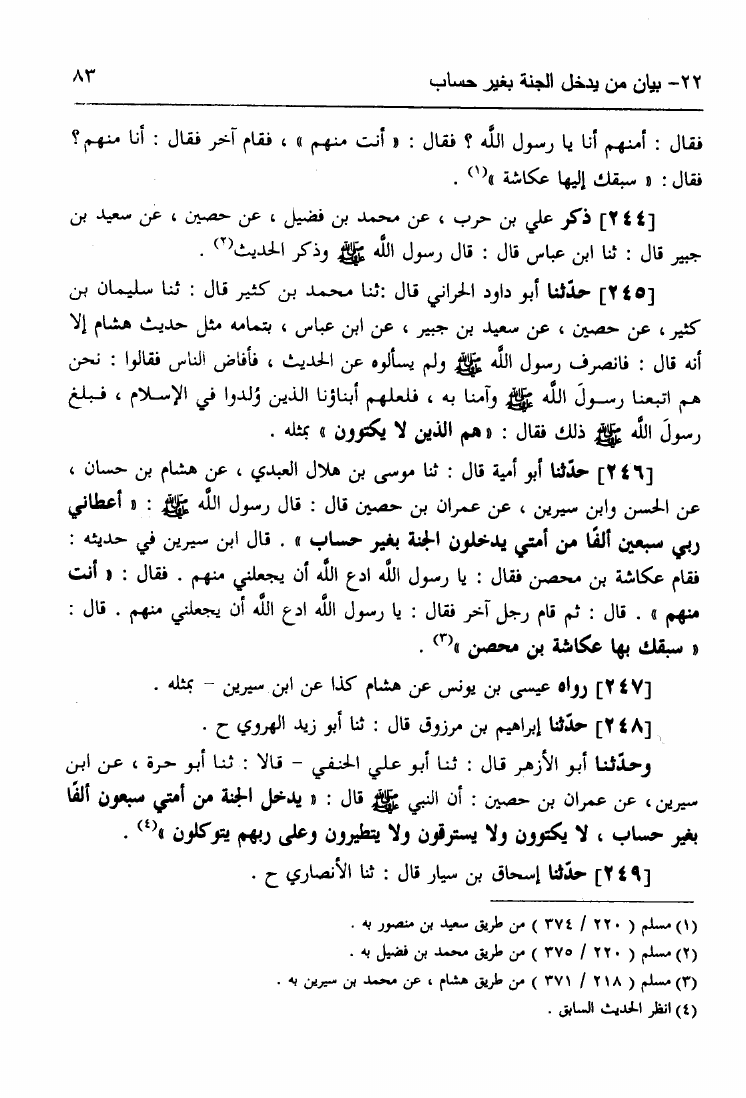 ٢٢- بيان من يدخل الجنة بغير حساب ٨٣
فقال : أمنهم أنا يا رسول اللَّه ؟ فقال : « أنت منهم » ، فقام آخر فقال : أنا منهم ؟
فقال : « سبقك إليها عكاشة »(١) .
[٢٤٤] ذكر علي بن حرب ، عن محمد بن فضيل ، عن حصين ، عن سعيد بن
جبير قال : ثنا ابن عباس قال : قال رسول اللَّه ﷺ وذكر الحديث(٢) .
[٢٤٥] حدّثنا أبو داود الحراني قال :ثنا محمد بن كثير قال : ثنا سليمان بن
كثير ، عن حصين ، عن سعيد بن جبير ، عن ابن عباس ، بتمامه مثل حديث هشام إلا
أنه قال : فانصرف رسول اللَّه ﷺ ولم يسألوه عن الحديث ، فأفاض الناس فقالوا : نحن
هم اتبعنا رسولَ اللَّه ﷺ وآمنا به ، فلعلهم أبناؤنا الذين وُلدوا في الإسلام ، فبلغ
رسولَ اللَّه ﷺ ذلك فقال : «هم الذين لا يكتوون » بمثله .
[٢٤٦] حدّثنا أبو أمية قال : ثنا موسى بن هلال العبدي ، عن هشام بن حسان ،
عن الحسن وابن سيرين ، عن عمران بن حصين قال : قال رسول اللَّه ﷺ : « أعطاني
ربي سبعين ألفًا من أمتي يدخلون الجنة بغير حساب » . قال ابن سيرين في حديثه :
فقام عكاشة بن محصن فقال : يا رسول اللَّه ادع اللَّه أن يجعلني منهم . فقال : « أنت
منهم » . قال : ثم قام رجل آخر فقال : يا رسول اللَّه ادع اللَّه أن يجعلني منهم . قال :
« سبقك بها عكاشة بن محصن »(٣) .
[٢٤٧] رواه عيسى بن يونس عن هشام كذا عن ابن سيرين – بمثله .
[٢٤٨] حدّثنا إبراهيم بن مرزوق قال : ثنا أبو زيد الهروي ح .
وحدّثنا أبو الأزهر قال : ثنا أبو علي الحنفي – قالا : ثنا أبو حرة ، عن ابن
سيرين، عن عمران بن حصين : أن النبي ﷺ قال : « يدخل الجنة من أمتي سبعون ألفًا
بغير حساب ، لا يكتوون ولا يسترقون ولا يتطيرون وعلى ربهم يتوكلون »(٤) .
[٢٤٩] حدّثنا إسحاق بن سيار قال : ثنا الأنصاري ح .
(١) مسلم ( ٢٢٠ / ٣٧٤ ) من طريق سعيد بن منصور به .
(٢) مسلم ( ٢٢٠ / ٣٧٥ ) من طريق محمد بن فضيل به .
(٣) مسلم ( ٢١٨ / ٣٧١ ) من طريق هشام ، عن محمد بن سيرين به .
(٤) انظر الحديث السابق .